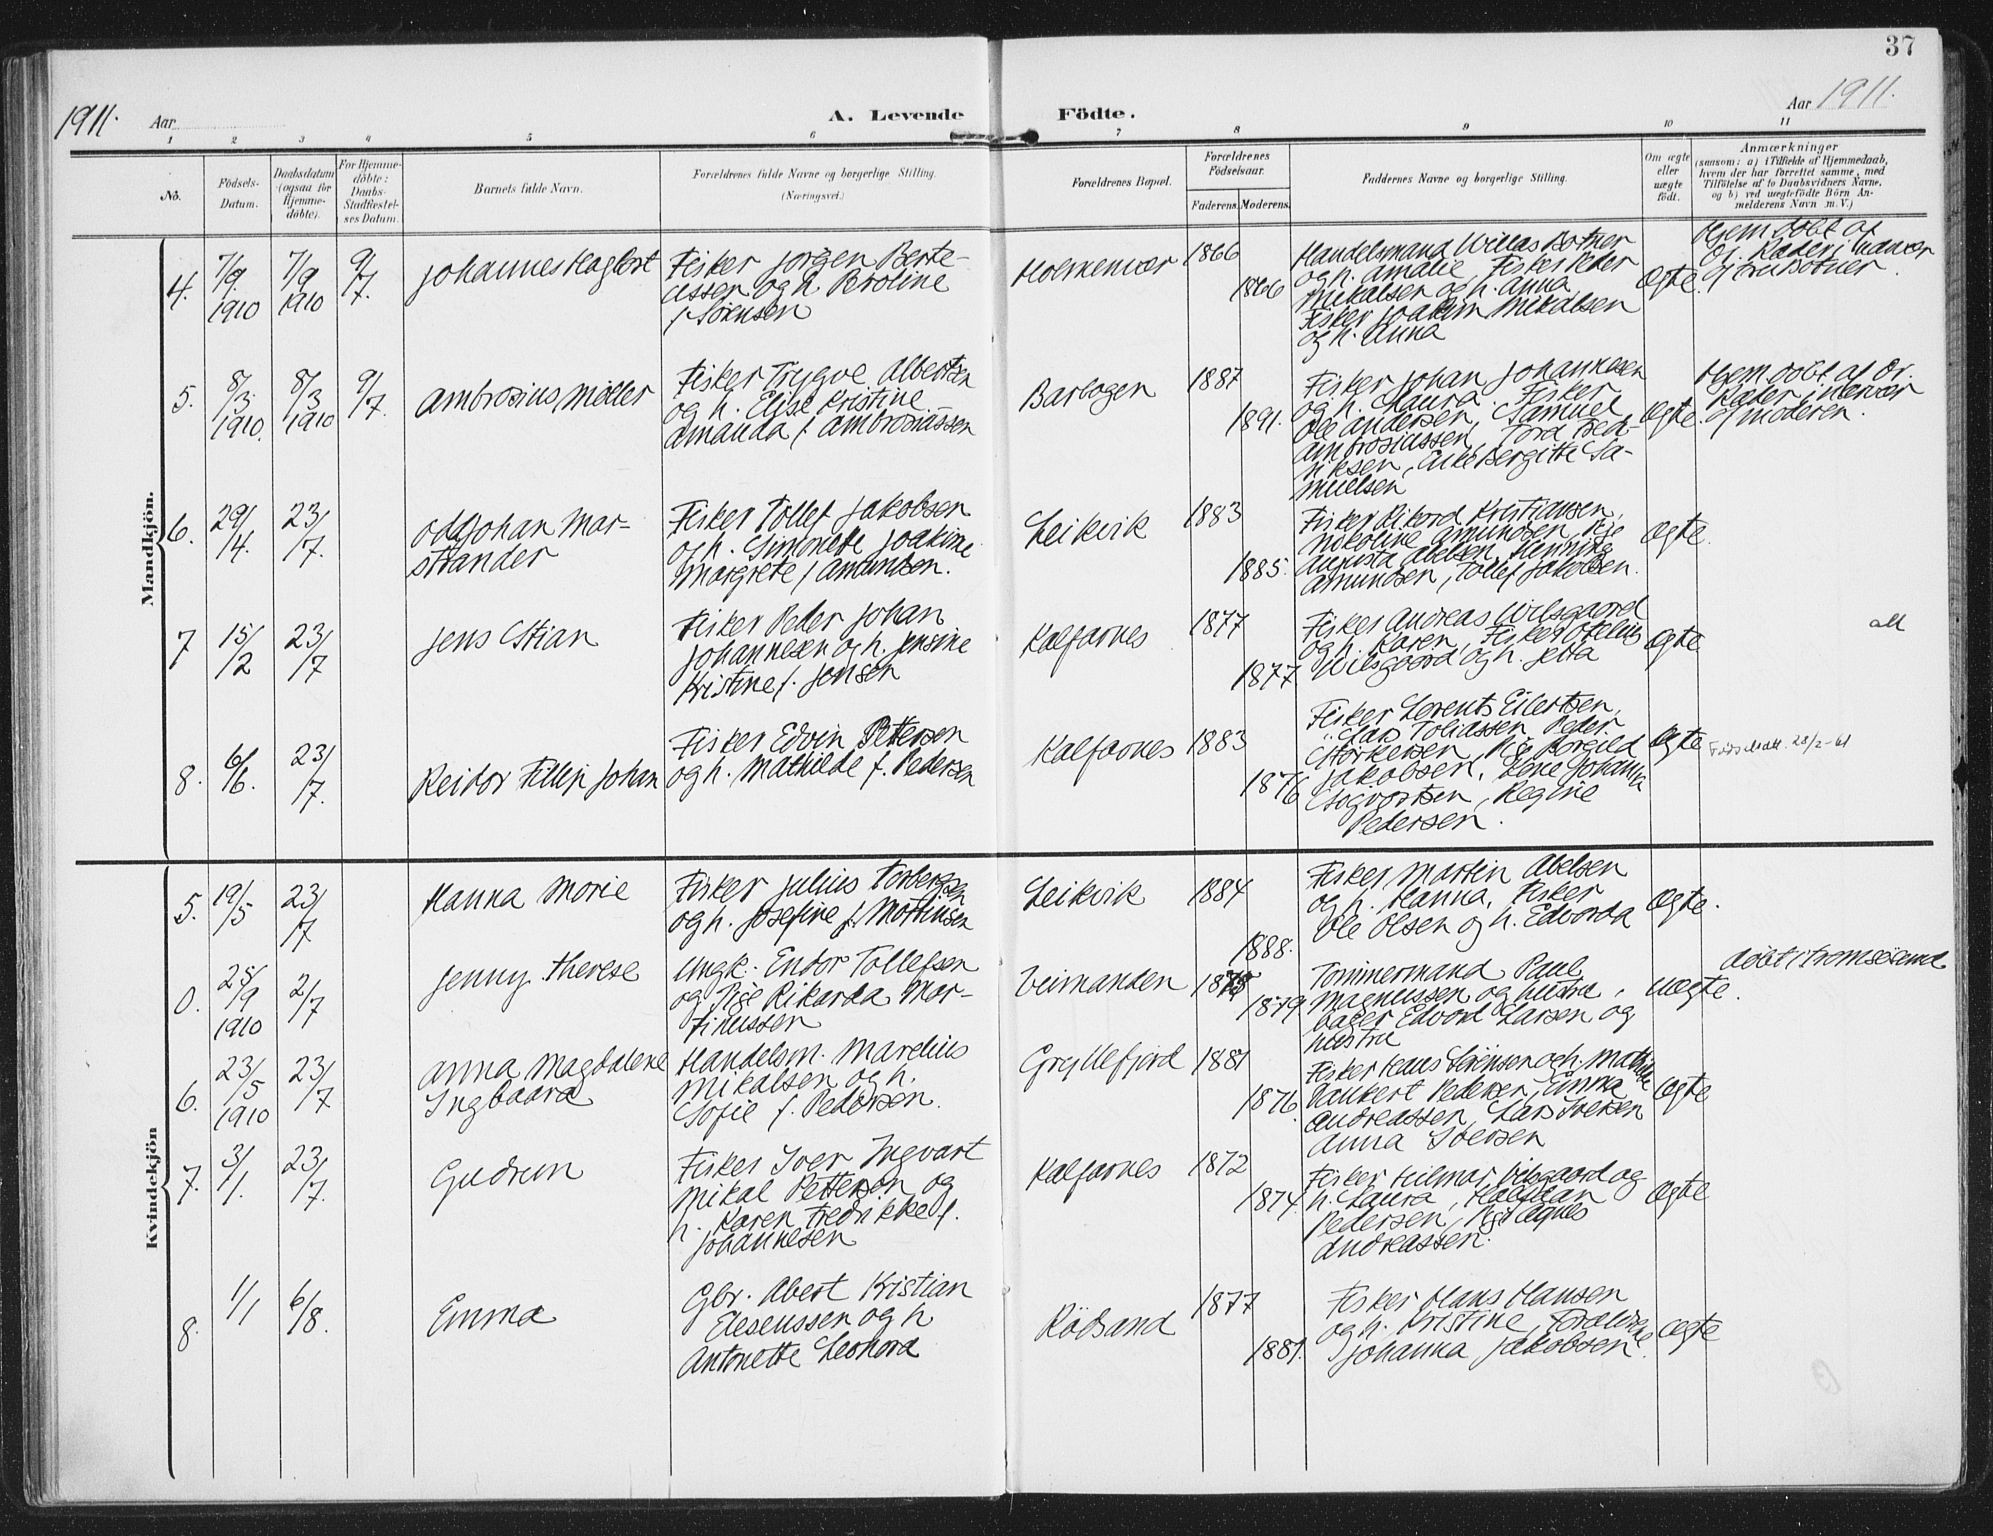 37
1911. Aar
A. Levende Födte.
Aar 1911.
1 2 3 4 5 6 7 8 9 10 11
No.
Födsels-
Datum.
Daabsdatum
(ogsaa for
Hjemme-
döbte).
For Hjemme-
döbte:
Daabs-
Stadfæstel-
ses Datum.
Barnets fulde Navn.
Forældrenes fulde Navne og borgerlige Stilling.
(Næringsvei.)
Forældrenes Bopæl.
Forældrenes
Födselsaar.
Faderens. Moderens.
Faddernes Navne og borgerlige Stilling.
Om ægte
eller
uægte
födt.
Anmærkninger
(saasom: a) i Tilfælde af Hjemmedaab,
hvem der har forrettet samme, med
Tilföielse af to Daabsvidners Navne,
og b) ved uægtefödte Börn An-
melderens Navn m. V.)
Mandkjön.
4.
7/9
1910
7/9
1910
9/7.
Johannes Hagbart
Fisker Jørgen Berte-
ussen og h. Beroline
f. Sørensen
Holmenvær
1866
1866
Handelsmand Willas Botner
og h. Amalie, Fisker Peder
Mikalsen og h. Anna
Fisker Joakim Mikalsen
og h. Anna
Ægte.
Hjemdøbt af
Botner.
5.
8/3
1910.
8/3
1910
9/7.
Ambrosius Møller
Fisker Trygve Albertsen
og h. Elise Kristine
Amanda f. Ambrosiassen
Barbogen
1887
1891.
Fisker Johan Johannesen
og h. Laura, Fisker
Ole Andersen, Samuel
Ambrosiussen, Tora Fred-
riksen, Bergitte Sa-
muelsen
Ægte.
Hjemdøbt af
Moderen.
6.
29/4.
23/7.
Odd Johan Mar-
strander
Fisker Tollef Jakobsen
og h. Simonette Joakime
Margrete f. Amundsen.
Leikvik
1883
1885.
Fisker Rikard Kristiansen,
Nikoline Amundsen, Pige
Augusta Abelsen, Henning
Amundsen, Tollef Jakobsen.
Ægte.
7
15/2
23/7
Jens Stian
Fisker Peder Johan
Johannesen og h. Jensine
Kristine f. Jensen
Kalfarnes
1877
1877
Fisker Andreas Wilsgaard
og h. Karen, Fisker Ofelius
Wilsgaard og h. Jetta
Ægte
att
8.
6/6.
23/7.
Reidar Fillip Johan
Fisker Edvin Pettersen
og h. Mathilde f. Pedersen
Kalfarnes
1883
1876
Fisker Lorents Eilertsen,
" Lars Tobiassen, Peder
Størkersen, Pige Borgild
Jakobsen, Lene Johanna
Sigvartsen, Regine
Pedersen.
Ægte
Fødselsatt. 28/2-61
Kvindekjön
5.
19/5
23/7
Hanna Marie
Fisker Julius Torbergsen
og h. Josefine f. Martinsen
Leikvik
1884
1888.
Fisker Martin Abelsen
og h. Hanna, Fisker
Ole Olsen og h. Edvarda
Ægte.
0.
25/9
1910
2/7
Jenny Therese
Ungk. Endor Tollefsen
og Pige Rikarda Mar-
tinussen
1879
Tømmermand Paul
Magnussen og hustru,
bager Edvard Larsen og
hustru
uægte.
døbt i Tromsøsund
6.
23/5
1910
23/7
Anna Magdalene
Ingbaara
Handelsm. Marelius
Mikalsen og h.
Sofie f. Pedersen.
Gryllefjord
1881
1876.
Fisker Hans Sørensen og h. Mathilde
Pedersen, Emma
Andreassen, Lars Iversen
Anna Iversen
Ægte
7.
3/1.
23/7.
Gudrun
Fisker Iver Ingvart
Mikal Pettersen og
h. Karen Fredrikke f.
Johannesen
Kalfarnes
1872
1874.
Fisker Hilmar Wilsgaard og
h. Laura, Halfdan
Pedersen, Pige Agnes
Andreassen.
Ægte
8.
1/1
6/8.
Emma
Gbr. Abert Kristian
Eleseussen og h
Antonette Leonora
Rødsand
1877
1881.
Fisker Hans Hansen
og h. Kristine, Foræld­rene
Johanna Jakobsen.
ægte